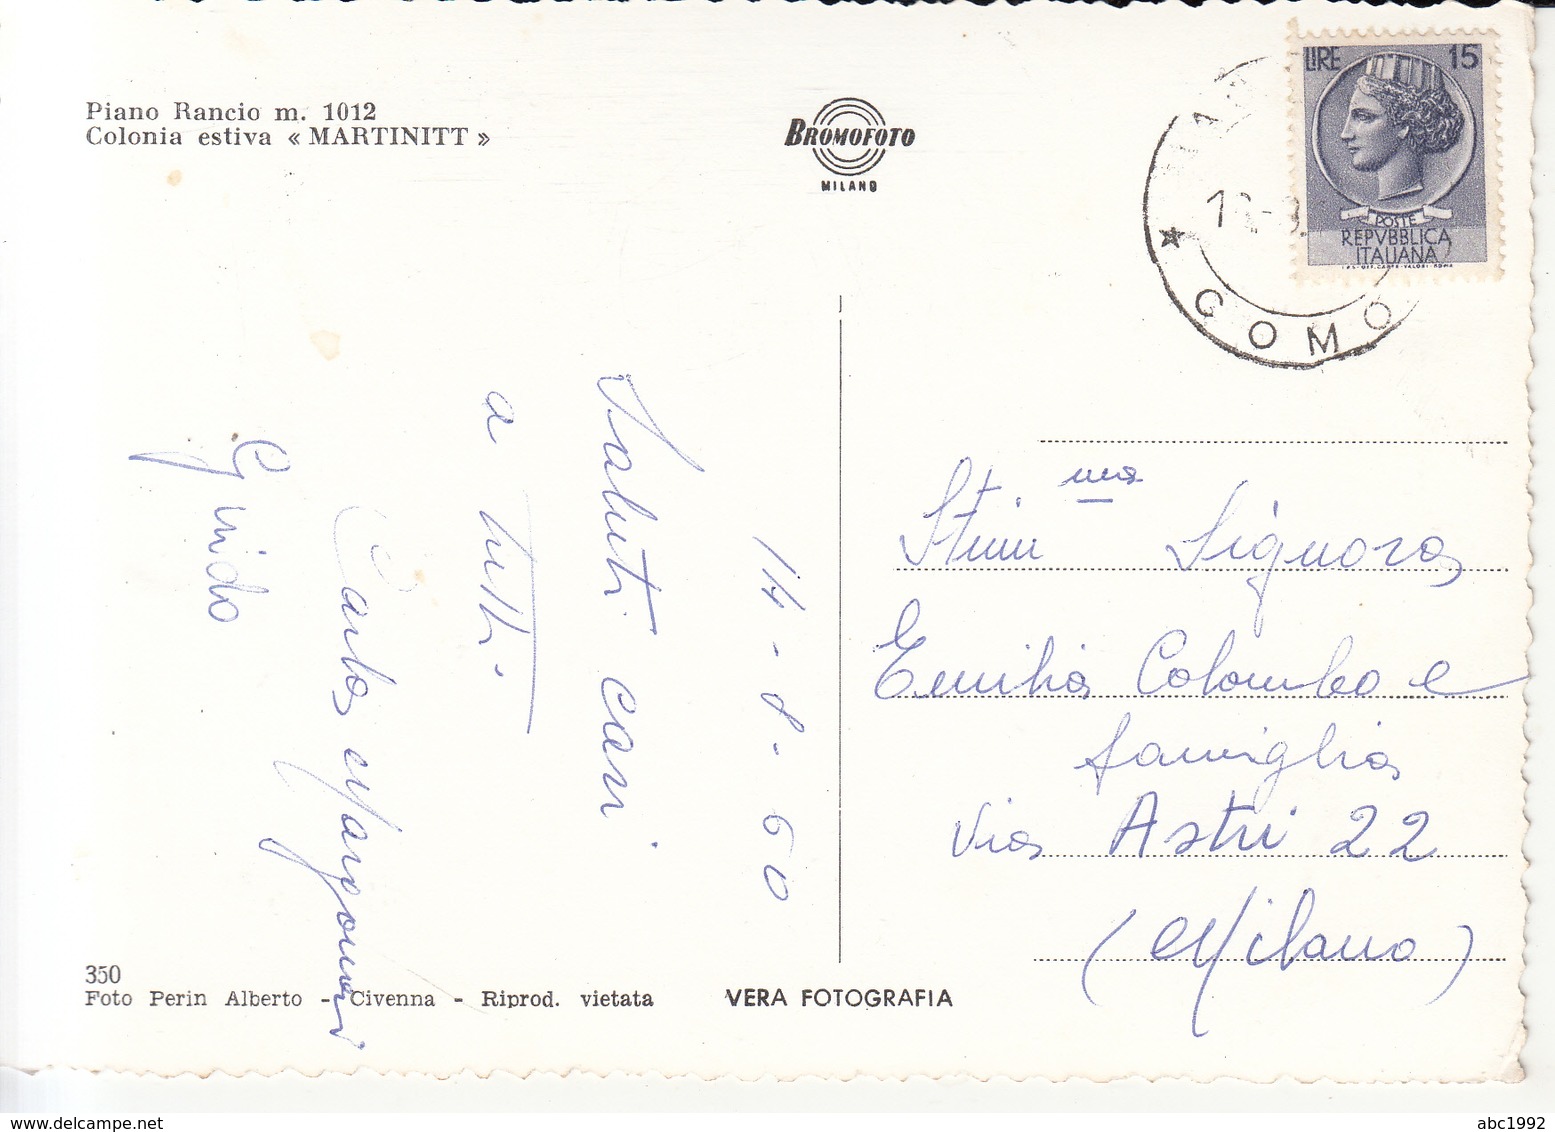 Piano Rancio m. 1012
Colonia estiva « MARTINITT »
BROMOFOTO
MILANO
LIRE 15
POSTE
REPVBBLICA
ITALIANA
I.P.S.-OFF. CARTE-VALORI-ROMA
COMO
14-8-60
Saluti cari
a tutti
Carla Margonari
Guido
Stim ma Signora
Emilia Colombo e
famiglia
Via Astri 22
(Milano)
350
Foto Perin Alberto - Civenna - Riprod. vietata
VERA FOTOGRAFIA
https://www.delcampe.net
abc1992